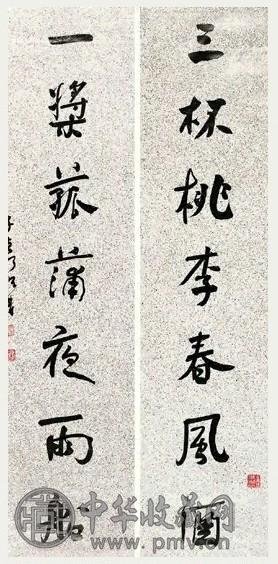 三杯桃李春風
一槳菰蒲夜雨船
中华收藏网
www.pmv.cn